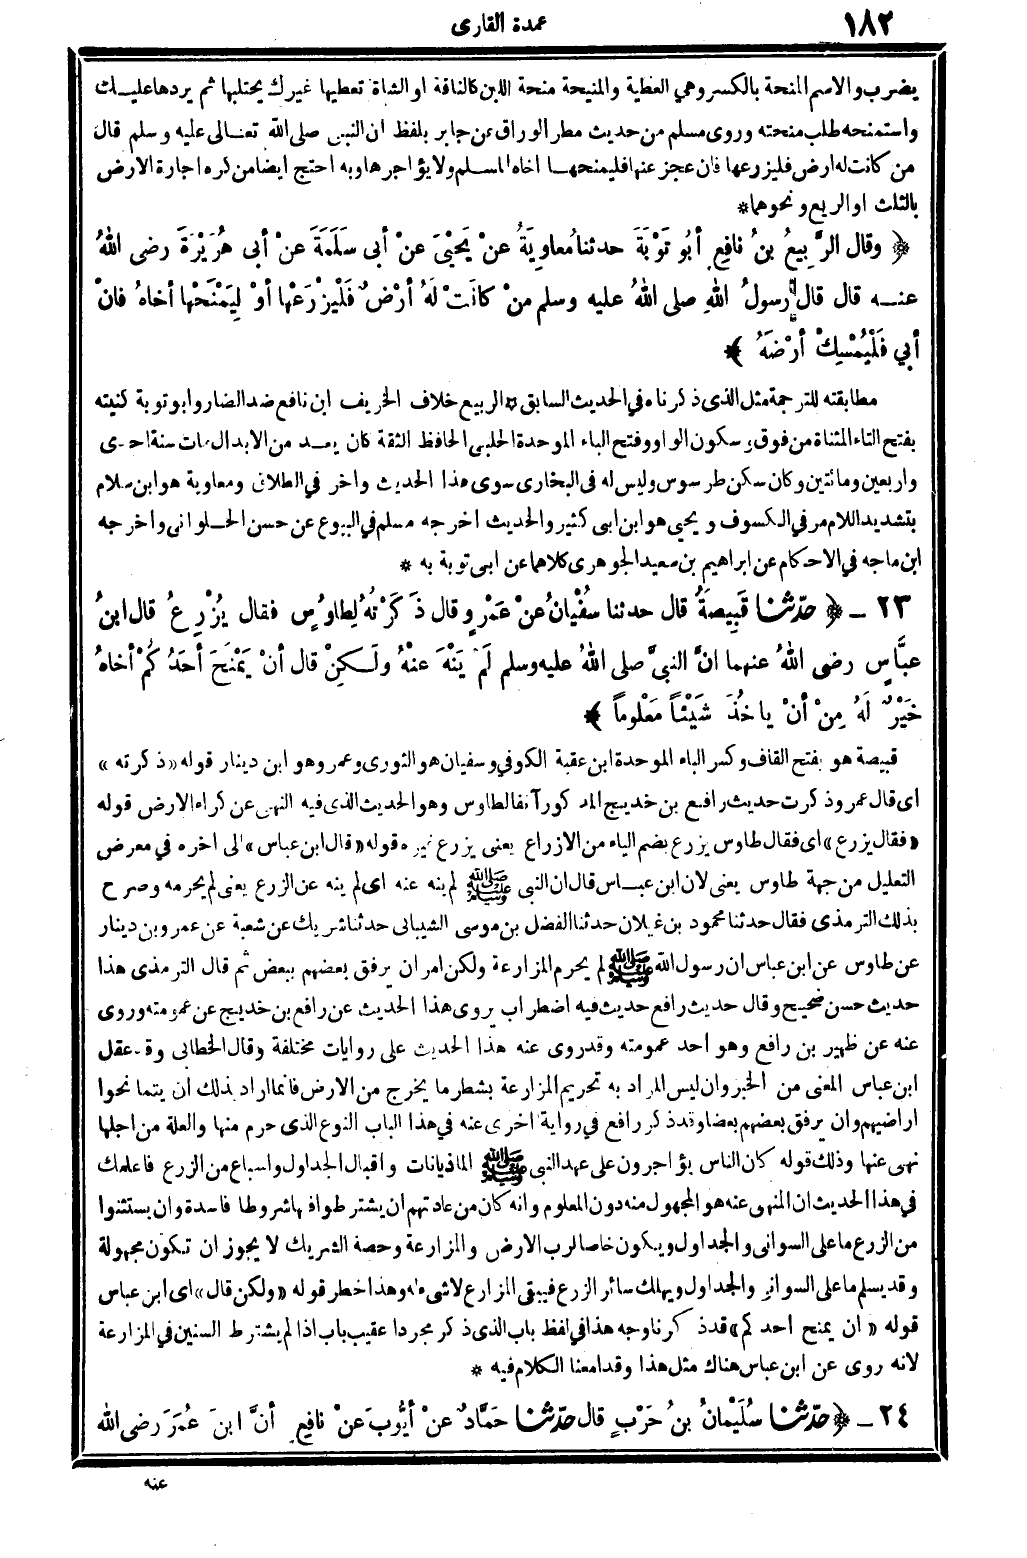 ١٨٢
عمدة القارى
يضرب والاسم المنحة بالكسر وهي العطية والمنيحة منحة اللبن كالناقة او الشاة تعطيها غيرك يحتلبها ثم يردها عليك
واستمنحه طلب منحته وروى مسلم من حديث مطر الوراق عن جابر بلفظ ان النبى صلى الله تعالى عليه وسلم قال
من كانت له ارض فليزرعها فان عجز عنها فليمنحها اخاه المسلم ولا يؤاجرها وبه احتج ايضا من كره اجارة الارض
بالثلث او الربع ونحوهما *
﴿ وقال الرَّبِيعُ بنُ نافِعٍ أبُو تَوْبَةَ حدثنا مُعاوِيَةُ عنْ يَحْيَىَ عنْ أبى سَلَمَةَ عنْ أبى هُرَيْرَةَ رضى اللهُ
عنه قال قال رسولُ اللهِ صلى اللهُ عليه وسلم مِنْ كانَتْ لَهُ أرْضٌ فَلْيَزْرَعْها أوْ لِيَمْنَحْها أخاهُ فانْ
أبي فَلْيُمْسِكْ أرْضَهُ ﴾
مطابقته للترجمة مثل الذى ذكرناه في الحديث السابق * الربيع خلاف الخريف ابن نافع ضد الضار وابو توبة كنيته
بفتح التاء المثناة من فوق وسكون الواو وفتح الباء الموحدة الحلبى الحافظ الثقة كان يعد من الابدال مات سنة احدى
واربعين ومائتين وكان سكن طرسوس وليس له فى البخارى سوى هذا الحديث واخر في الطلاق ومعاوية هو ابن سلام
بتشديد اللام مر في الكسوف ويحيى هو ابن ابى كثير والحديث اخرجه مسلم في البيوع عن حسن الحلوانى واخرجه
ابن ماجه في الاحكام عن ابراهيم بن سعيد الجوهرى كلاهما عن ابى توبة به *
٢٣ ـ ﴿ حدّثنا قَبِيصَةُ قال حدثنا سُفْيانُ عنْ عَمْرٍو قال ذَكَرْتُهُ لِطاوُسٍ فقال يُزْرِعُ قال ابنُ
عبَّاسٍ رضى اللهُ عنهما انَّ النبيَّ صلى اللهُ عليه وسلم لَمْ يَنْهَ عنْهُ ولَكِنْ قال أنْ يَمْنَحَ أحَدُكُمْ أخاهُ
خَيْرٌ لَهُ مِنْ أنْ ياخُذَ شَيْئاً مَعْلُوماً ﴾
قبيصة هو بفتح القاف وكسر الباء الموحدة ابن عقبة الكوفي وسفيان هو الثورى وعمرو هو ابن دينار قوله «ذكرته»
اى قال عمرو ذكرت حديث رافع بن خديج المذكور آنفا لطاوس وهو الحديث الذى فيه النهى عن كراء الارض قوله
«فقال يزرع» اى فقال طاوس يزرع بضم الياء من الازراع يعنى يزرع غيره قوله «قال ابن عباس» الى اخره في معرض
التعليل من جهة طاوس يعنى لان ابن عباس قال ان النبى ﷺ لم ينه عنه اى لم ينه عن الزرع يعنى لم يحرمه وصرح
بذلك الترمذى فقال حدثنا محمود بن غيلان حدثنا الفضل بن موسى الشيبانى حدثنا شريك عن شعبة عن عمرو بن دينار
عن طاوس عن ابن عباس ان رسول الله ﷺ لم يحرم المزارعة ولكن امر ان يرفق بعضهم ببعض ثم قال الترمذى هذا
حديث حسن صحيح وقال حديث رافع حديث فيه اضطراب يروى هذا الحديث عن رافع بن خديج عن عمومته وروى
عنه عن ظهير بن رافع وهو احد عمومته وقد روى عنه هذا الحديث على روايات مختلفة وقال الخطابى وقد عقل
ابن عباس المعنى من الخبر وان ليس المراد به تحريم المزارعة بشطر ما يخرج من الارض فانما اراد بذلك ان يتمانحوا
اراضيهم وان يرفق بعضهم بعضا وقد ذكر رافع في رواية اخرى عنه في هذا الباب النوع الذى حرم منها والعلة من اجلها
نهى عنها وذلك قوله كان الناس يؤاجرون على عهد النبى ﷺ الماذيانات واقبال الجداول واسباع من الزرع فاعلمك
في هذا الحديث ان المنهى عنه هو المجهول منه دون المعلوم وانه كان من عادتهم ان يشترطوا فيها شروطا فاسدة وان يستثنوا
من الزرع ما على السوانى والجداول ويكون خاصا لرب الارض والمزارعة وحصة الشريك لا يجوز ان تكون مجهولة
وقد يسلم ما على السوانى والجداول ويهلك سائر الزرع فيبقى المزارع لا شىء له وهذا خطر قوله «ولكن قال» اى ابن عباس
قوله «ان يمنح احدكم» قد ذكرنا وجه هذا في لفظ باب الذى ذكر مجردا عقيب باب اذا لم يشترط السنين في المزارعة
لانه روى عن ابن عباس هناك مثل هذا وقد امعنا الكلام فيه *
٢٤ ـ ﴿ حدّثنا سُلَيْمانُ بنُ حَرْبٍ قال حدّثنا حَمَّادٌ عنْ أيُّوبَ عنْ نافِعٍ أنَّ ابنَ عُمَرَ رضى الله
عنه